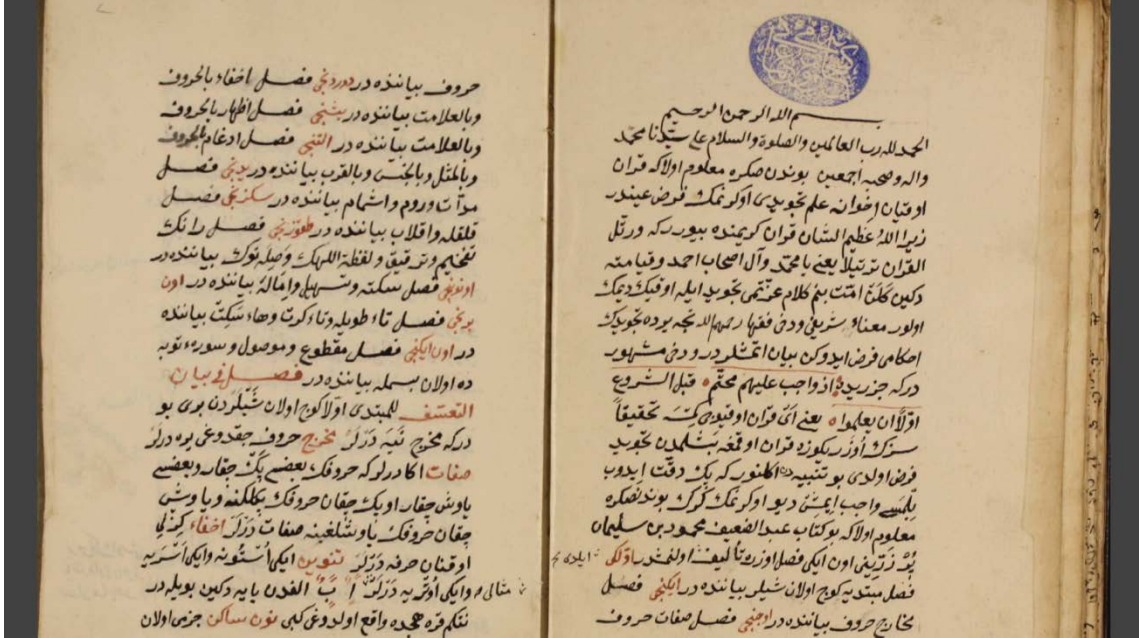 بسم الله الرحمن الرحيم
الحمد لله رب العالمين والصلوة والسلام على سيدنا محمد
واله وصحبه اجمعين بوندن صكره معلوم اولاكه قران
اوقيان اخوانه علم تجويدى اوكرنمك فرض عيندر
زيرا الله عظيم الشان قران كريمنده بيورركه ورتل
القران ترتيلا يعنى يا محمد وآل اصحاب احمد وقيامته
دكين كلن امت بنم كلام عزتمى تجويد ايله اوقيك ديمك
اولور معناء شريفى ودخى فقها رحمهم الله نجه يرده تجويدك
احكامى فرض ايدوكن بيان اتمشلردر ودخى مشهور
دركه جزريده اذ واجب عليهم محتم قبل الشروع
اولا ان يعلموا يعنى اى قران اوقيوجى تحقيقاً
سزك اوزريكوزه قران اوقمغه بشلمدن تجويد
فرض اولدى بو تنبيه ده اكلنوركه پك دقت ايدوب
بلمسى واجب ايمش ديو اوكرنمك كرك بوندنصكره
معلوم اولاكه بو كتاب عبد الضعيف محمود بن سليمان
اون ايكى فصل اوزره تأليف اولنمشدر اولكى
فصل مبتديه كوج اولان شيلر بياننده در ايكنجى فصل
مخارج حروف بياننده در اوچنجى فصل صفات حروف
حروف بياننده در دوردنجى فصل اخفاء بالحروف
وبالعلامت بياننده در بشنجى فصل اظهار بالحروف
وبالعلامت بياننده در التنجى فصل ادغام بالحروف
وبالمثل وبالجنس وبالقرب بياننده در يدنجى فصل
مدات وروم واشمام بياننده در سكزنجى فصل
قلقله واقلاب بياننده در طقوزنجى فصل رانك
تفخيم وترقيق ولفظة اللهك وصله نوك بياننده در
اوننجى فصل سكته وتسهيل واماله بياننده در اون
برنجى فصل تاء طويله وتاء كرت وهاء سكت بياننده
در اون ايكنجى فصل مقطوع وموصول وسورهء توبه
ده اولان بسمله بياننده در فصل فى بيان
التعسف للمبتدى اولا كوج اولان شيلردن برى بو
دركه مخرج نيه درلر مخرج حروف چقدوغى يره درلر
صفات اكا درلركه حروفك بعضى پك چقار وبعضى
ياوش چقار او پك چقان حروفك پكلكنه وياوش
چقان حروفك ياوشلغينه صفات درلر اخفاء كيزلى
اوقنان حرفه درلر تنوين ايكى استونه وايكى اسريه
وايكى اوتريه درلر اً بٍ بٌ الفدن يايه دكين بويله در
واقع اولدوغى كبى نون ساكن جزمى اولان